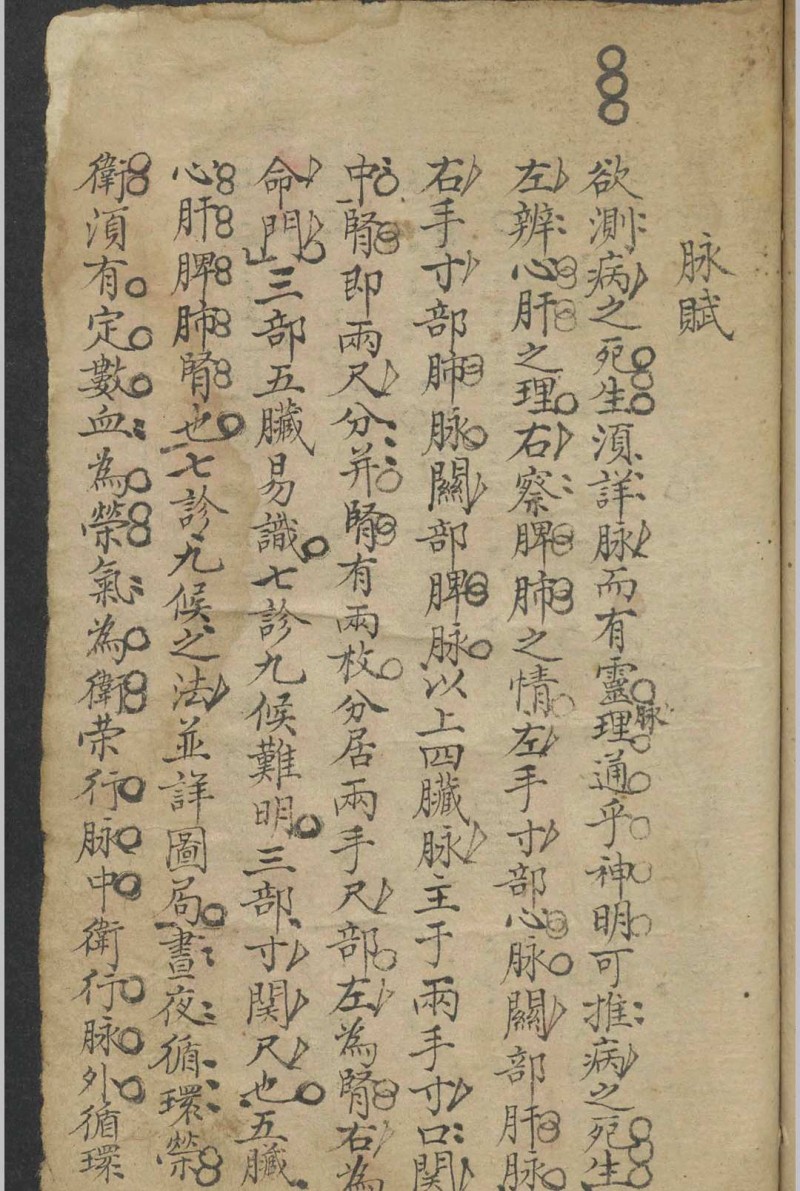 脉賦
欲測病之死生湏詳脉而有靈脉理通乎神明可推病之死生
左辨心肝之理右察脾肺之情左手寸部心脉關部肝脉
右手寸部肺脉關部脾脉以上四臓脉主于兩手寸口関
中腎即兩尺分并腎有兩枚分居兩手尺部左為腎右為
命門三部五臓易識七診九候難明三部寸関尺也五臓
心肝脾肺腎也七診九候之法並詳圖局晝夜循環榮
衛湏有定數血為榮氣為衛荣行脉中衛行脉外循環